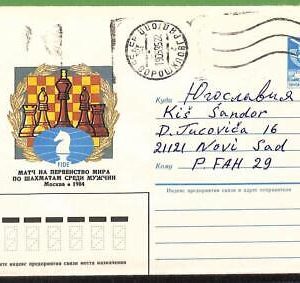 FIDE
МАТЧ НА ПЕРВЕНСТВО МИРА
ПО ШАХМАТАМ СРЕДИ МУЖЧИН
Москва • 1984
Куда
Югославия
Kiš Šandor
D. Tucovića 16
21121 Novi Sad
Кому
P. FAH 29
Индекс предприятия связи и адрес отправителя
Индекс предприятия связи места назначения